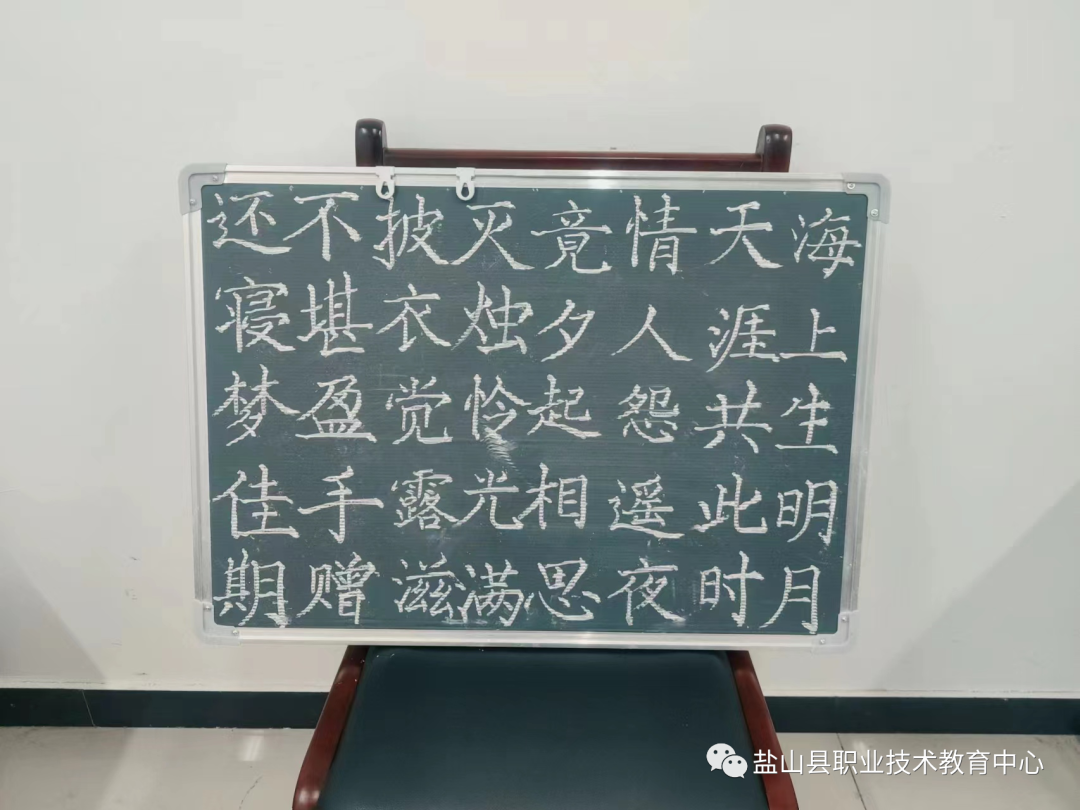 海上生明月
天涯共此时
情人怨遥夜
竟夕起相思
灭烛怜光满
披衣觉露滋
不堪盈手赠
还寝梦佳期
盐山县职业技术教育中心